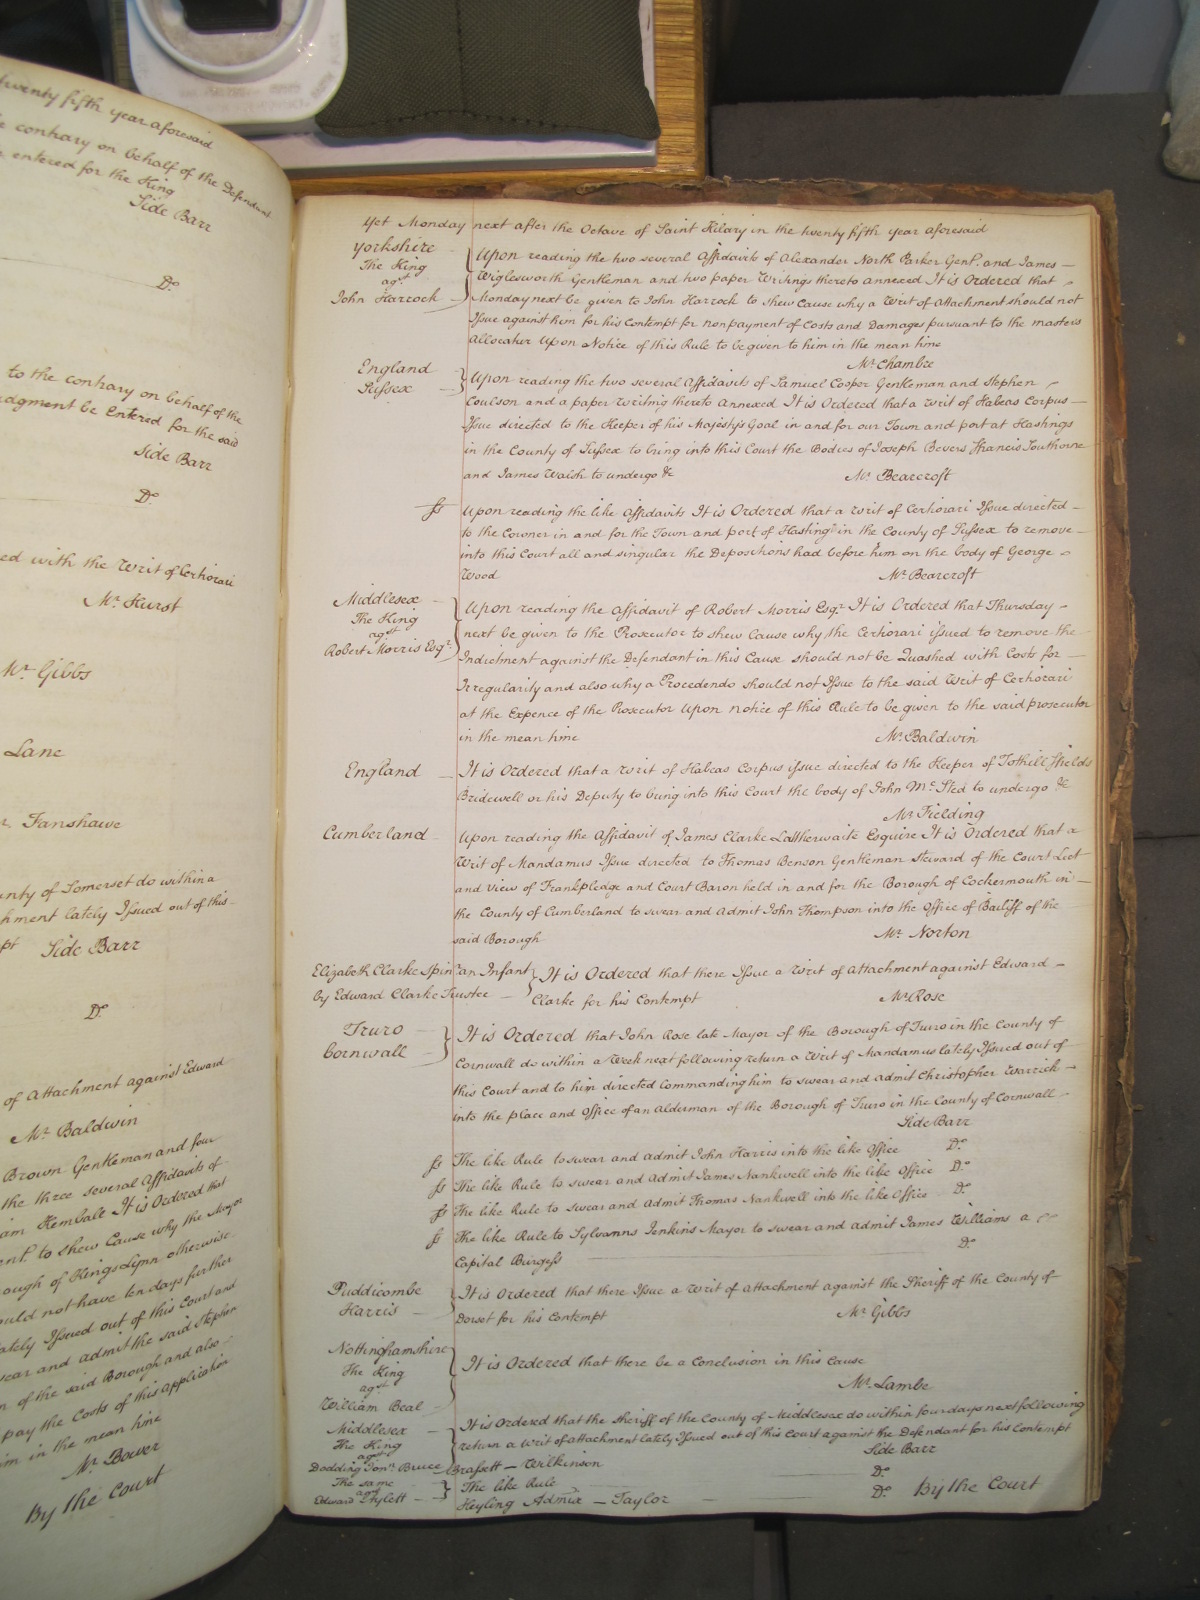 twenty fifth year aforesaid
contrary on behalf of the Defendant
entered for the King
Side Barr
Do
to the contrary on behalf of the
Judgment be Entered for the said
Side Barr
Do
ed with the Writ of Certiorari
Mr Hurst
Mr Gibbs
Lane
Fanshawe
unty of Somerset do within a
hment lately Issued out of this
pt Side Barr
Do
of Attachment against Edward
Mr Baldwin
Brown Gentleman and four
the three several Affidavits of
am Kemball It is Ordered that
ent to shew Cause why the Mayor
ough of Kings Lynn otherwise
ould not have ten days further
lately Issued out of this Court and
wear and admit the said Stephen
of the said Borough and also
pay the Costs of this Application
im in the mean time
Mr Bower
By the Court
Yet Monday next after the Octave of Saint Hilary in the twenty fifth year aforesaid
Yorkshire
The King
agst
John Harrock
Upon reading the two several Affidavits of Alexander North Parker Gent. and James
Wiglesworth Gentleman and two paper Writings thereto annexed It is Ordered that
Monday next be given to John Harrock to shew Cause why a Writ of Attachment should not
Issue against him for his Contempt for nonpayment of Costs and Damages pursuant to the masters
Allocatur Upon Notice of this Rule to be given to him in the mean time
Mr Chambre
England
Sussex
Upon reading the two several Affidavits of Samuel Cooper Gentleman and Stephen
Coulson and a paper Writing thereto Annexed It is Ordered that a Writ of Habeas Corpus
Issue directed to the Keeper of his Majesty's Goal in and for our Town and port at Hastings
in the County of Sussex to bring into this Court the Bodies of Joseph Bevers Francis Southorne
and James Walsh to undergo &c
Mr Bearcroft
ss Upon reading the like Affidavits It is Ordered that a Writ of Certiorari Issue directed
to the Coroner in and for the Town and port of Hastings in the County of Sussex to remove
into this Court all and singular the Depositions had before him on the body of George
Wood
Mr Bearcroft
Middlesex
The King
agst
Robert Morris Esqr.
Upon reading the Affidavit of Robert Morris Esqr. It is Ordered that Thursday
next be given to the Prosecutor to shew Cause why the Certiorari issued to remove the
Indictment against the Defendant in this Cause should not be Quashed with Costs for
Irregularity and also why a Procedendo should not Issue to the said Writ of Certiorari
at the Expence of the Prosecutor Upon notice of this Rule to be given to the said prosecutor
in the mean time
Mr Baldwin
England It is Ordered that a Writ of Habeas Corpus issue directed to the Keeper of Tothill Fields
Bridewell or his Deputy to bring into this Court the body of John Mc. Sted to undergo &c
Mr Fielding
Cumberland Upon reading the Affidavit of James Clarke Satterwaite Esquire It is Ordered that a
Writ of Mandamus Issue directed to Thomas Benson Gentleman Steward of the Court Leet
and View of Frankpledge and Court Baron held in and for the Borough of Cockermouth in
the County of Cumberland to swear and Admit John Thompson into the Office of Bailiff of the
said Borough
Mr Norton
Elizabeth Clarke Spinr. an Infant
by Edward Clarke Trustee
It is Ordered that there Issue a Writ of Attachment against Edward
Clarke for his Contempt
Mr Rose
Truro
Cornwall
It is Ordered that John Rose late Mayor of the Borough of Truro in the County of
Cornwall do within a Week next following return a Writ of Mandamus lately Issued out of
this Court and to him directed Commanding him to swear and Admit Christopher Warrick
into the place and Office of an Alderman of the Borough of Truro in the County of Cornwall
Side Barr
ss The like Rule to swear and admit John Harris into the like Office Do
ss The like Rule to swear and Admit James Nankivell into the like Office Do
ss The like Rule to swear and Admit Thomas Nankivell into the like Office Do
ss The like Rule to Sylvanns Jenkins Mayor to swear and admit James Williams a
Capital Burgess
Do
Puddicombe
Harris
It is Ordered that there Issue a Writ of Attachment against the Sheriff of the County of
Dorset for his Contempt
Mr Gibbs
Nottinghamshire
The King
agst
William Beal
It is Ordered that there be a Conclusion in this Cause
Mr Lambe
Middlesex
The King
agst
Dodding Jonn. Bruce
It is Ordered that the Sheriff of the County of Middlesex do within four days next following
return a Writ of attachment lately Issued out of this Court against the Defendant for his Contempt
Side Barr
Brassett – Wilkinson
Do
The same
agst
Edward Aylett
The like Rule
Heyling Admix – Taylor
Do By the Court